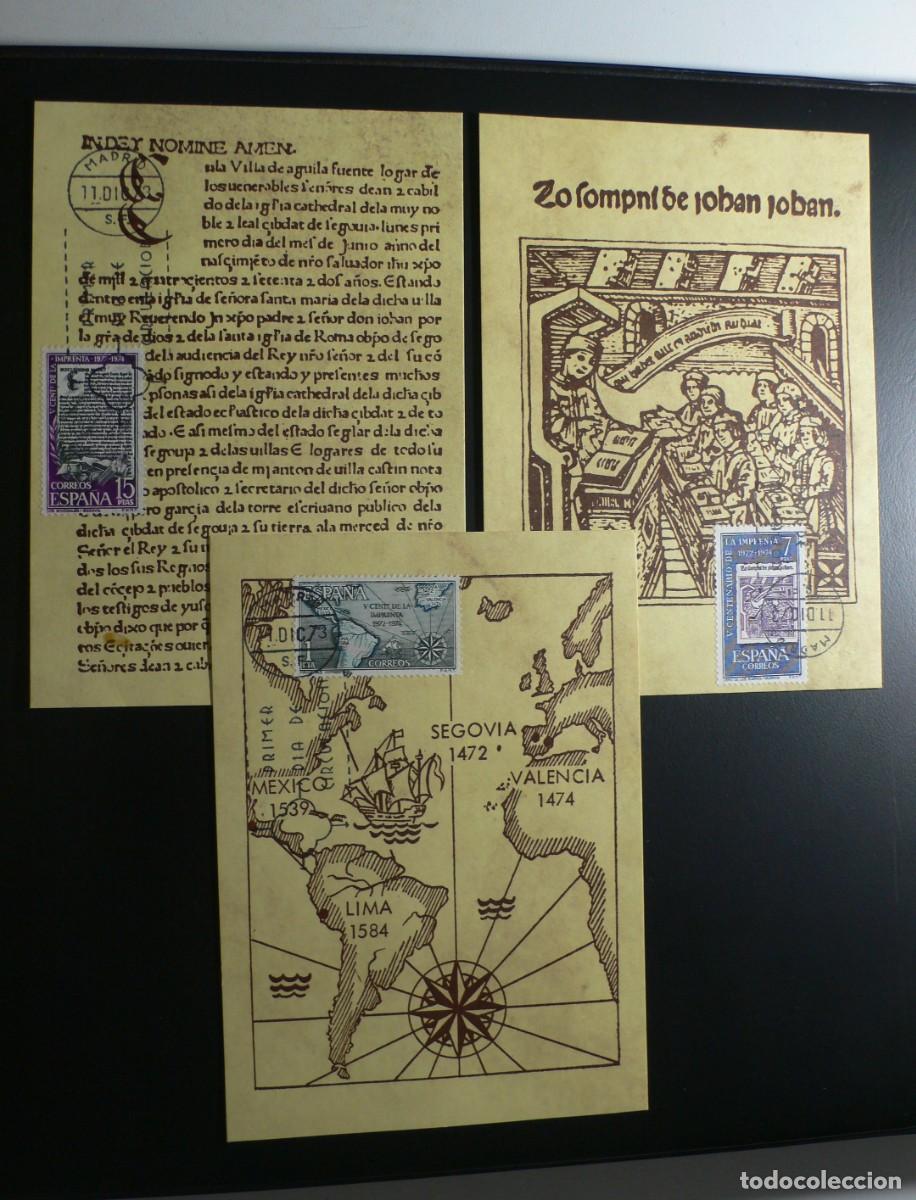 IN DEY NOMINE AMEN.
MADRID
11.DIC.73
S.F.
nla Villa de aguila fuente logar de
los uenerables señores dean 2 cabil
do dela igłia cathedral dela muy no
ble 2 leal çibdat de segouia. lunes pri
mero dia del mes de Junio anno del
nasçimiēto de nr̄o saluador ihu xp̄o
de mill 2 quatrocientos 2 setenta 2 dos años. Estando
dentro en la igłia de señora santa maria dela dicha uilla
el muy Reuerendo Jn xp̄o padre 2 señor don iohan por
la grā de dios 2 dela santa igłia de Roma obpo de sego
dela audiencia del Rey nr̄o señor 2 del su cō
ado signodo y estando y presentes muchos
psonas asi dela igłia cathedral dela dicha çib
del estado eclastico dela dicha çibdat 2 de to
ado. E asi mesmo del estado seglar dela dicha
segouia 2 delas uillas E logares de todo su
en presencia de mj anton de uilla castin nota
o apostolico 2 secretario del dicho señor obpo
pero garçia dela torre escriuano publico dela
dicha çibdat de segouia 2 su tierra ala merced de nr̄o
Señor el Rey 2 su
dos los sus Regnos
del cōcep 2 pueblos
los testigos de yuso
obpo dixo que por
tos
Señores dean 2 cab
V CENT. DE LA
IMPRENTA 1972-1974
CORREOS
ESPAÑA
15
PTAS
Lo sompni de iohan iohan.
V CENTENARIO DE
LA IMPRENTA
1972-1974
7
PTAS
Lo sompni de iohan iohan.
ESPAÑA
CORREOS
11.DIC.73
MADRID
ESPAÑA
V CENT. DE LA
IMPRENTA
1972-1974
1
PTA
CORREOS
11.DIC.73
S.F.
PRIMER
DIA DE
CIRCULACION
SEGOVIA
1472
VALENCIA
1474
MEXICO
1539
LIMA
1584
todocoleccion